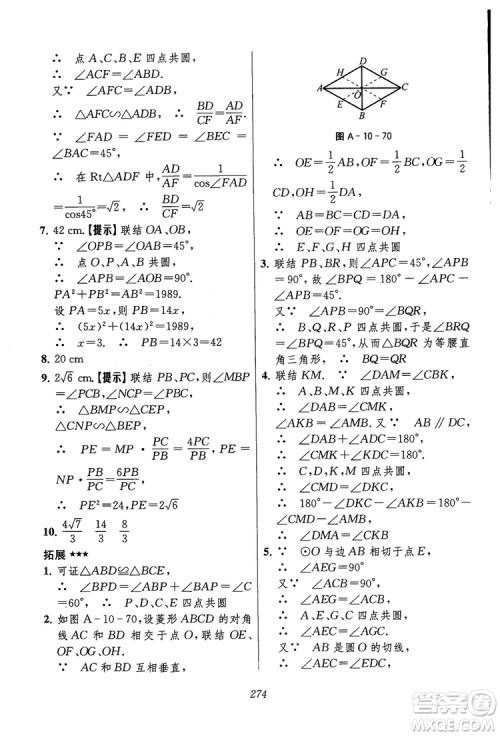 ∴ 点 A、C、B、E 四点共圆
∴ ∠ACF=∠ABD.
又∵ ∠AFC=∠ADB,
∴ △AFC∽△ADB, ∴ BD/CF=AD/AF.
∵ ∠FAD = ∠FED = ∠BEC =
∠BAC=45°,
∴ 在 Rt△ADF 中, AD/AF = 1/cos∠FAD
= 1/cos45° = √2 ∴ BD/CF=√2
7. 42 cm.【提示】联结 OA、OB,
∵ ∠OPB=∠OAB=45°,
∴ 点 O、P、A、B 四点共圆
∴ ∠APB=∠AOB=90°.
PA²+PB²=AB²=1989.
设 PA=5x, 则 PB=9x,
∴ (5x)²+(9x)²=1989,
∴ x=3. ∴ PB=14×3=42
8. 20 cm
9. 2√6 cm.【提示】联结 PB、PC, 则∠MBP
=∠PCB,∠NCP=∠PBC.
∴ △BMP∽△CEP,
△CNP∽△BEP,
∴ PE = MP · PC/PB = 4PC/PB, PE =
NP · PB/PC = 6PB/PC
∴ PE²=24, PE=2√6
10. 4√7/3 14/3 8/3
拓展 ★★★
1. 可证△ABD≌△BCE,
∴ ∠BPD = ∠ABP + ∠BAP = ∠C
=60°, ∴ P、D、C、E 四点共圆
2. 如图 A-10-70, 设菱形 ABCD 的对角
线 AC 和 BD 相交于点 O, 联结 OE、
OF、OG、OH.
∵ AC 和 BD 互相垂直,
D
H G
A O C
E F
B
图 A-10-70
∴ OE = 1/2 AB, OF = 1/2 BC, OG = 1/2
CD, OH = 1/2 DA,
∴ OE=OF=OG=OH
∴ E、F、G、H 四点共圆
3. 联结 PB、BR, 则∠APC=45°, ∠APB
=90°, 故∠BPQ=180°-∠APC-∠APB
=45°=∠BQR
又∵ ∠APB=90°
∴ B、Q、R、P 四点共圆, 于是∠BRQ
= ∠BPQ = 45°, 从而△BQR 为等腰直
角三角形, ∴ BQ=QR
4. 联结 KM. ∵ ∠AKB=90°
∴ A、B、K、M 四点共圆
∴ ∠DAB=∠CMK,
∠AKB = ∠AMB = 90°. 又∵ AB∥DC,
∴ ∠DAB+∠ADC=180°,
∴ ∠CMK+∠KDC=180°.
∴ C、D、K、M 四点共圆
∴ 180°-∠DAB-∠ADM=180°-
∠KDM-∠CMK,
∴ ∠DMA=∠CKB
5. ∵ ⊙O 与边 AB 相切于点 E
又∵ ∠ACB=90°
∴ ∠AEB=∠ACB.
∵ AD⊥CE
∴ A、E、G、C 四点共圆
∴ ∠AEC=∠AGC.
又∵ AB 是⊙O 的切线,
∴ ∠AEC=∠EDF,
274